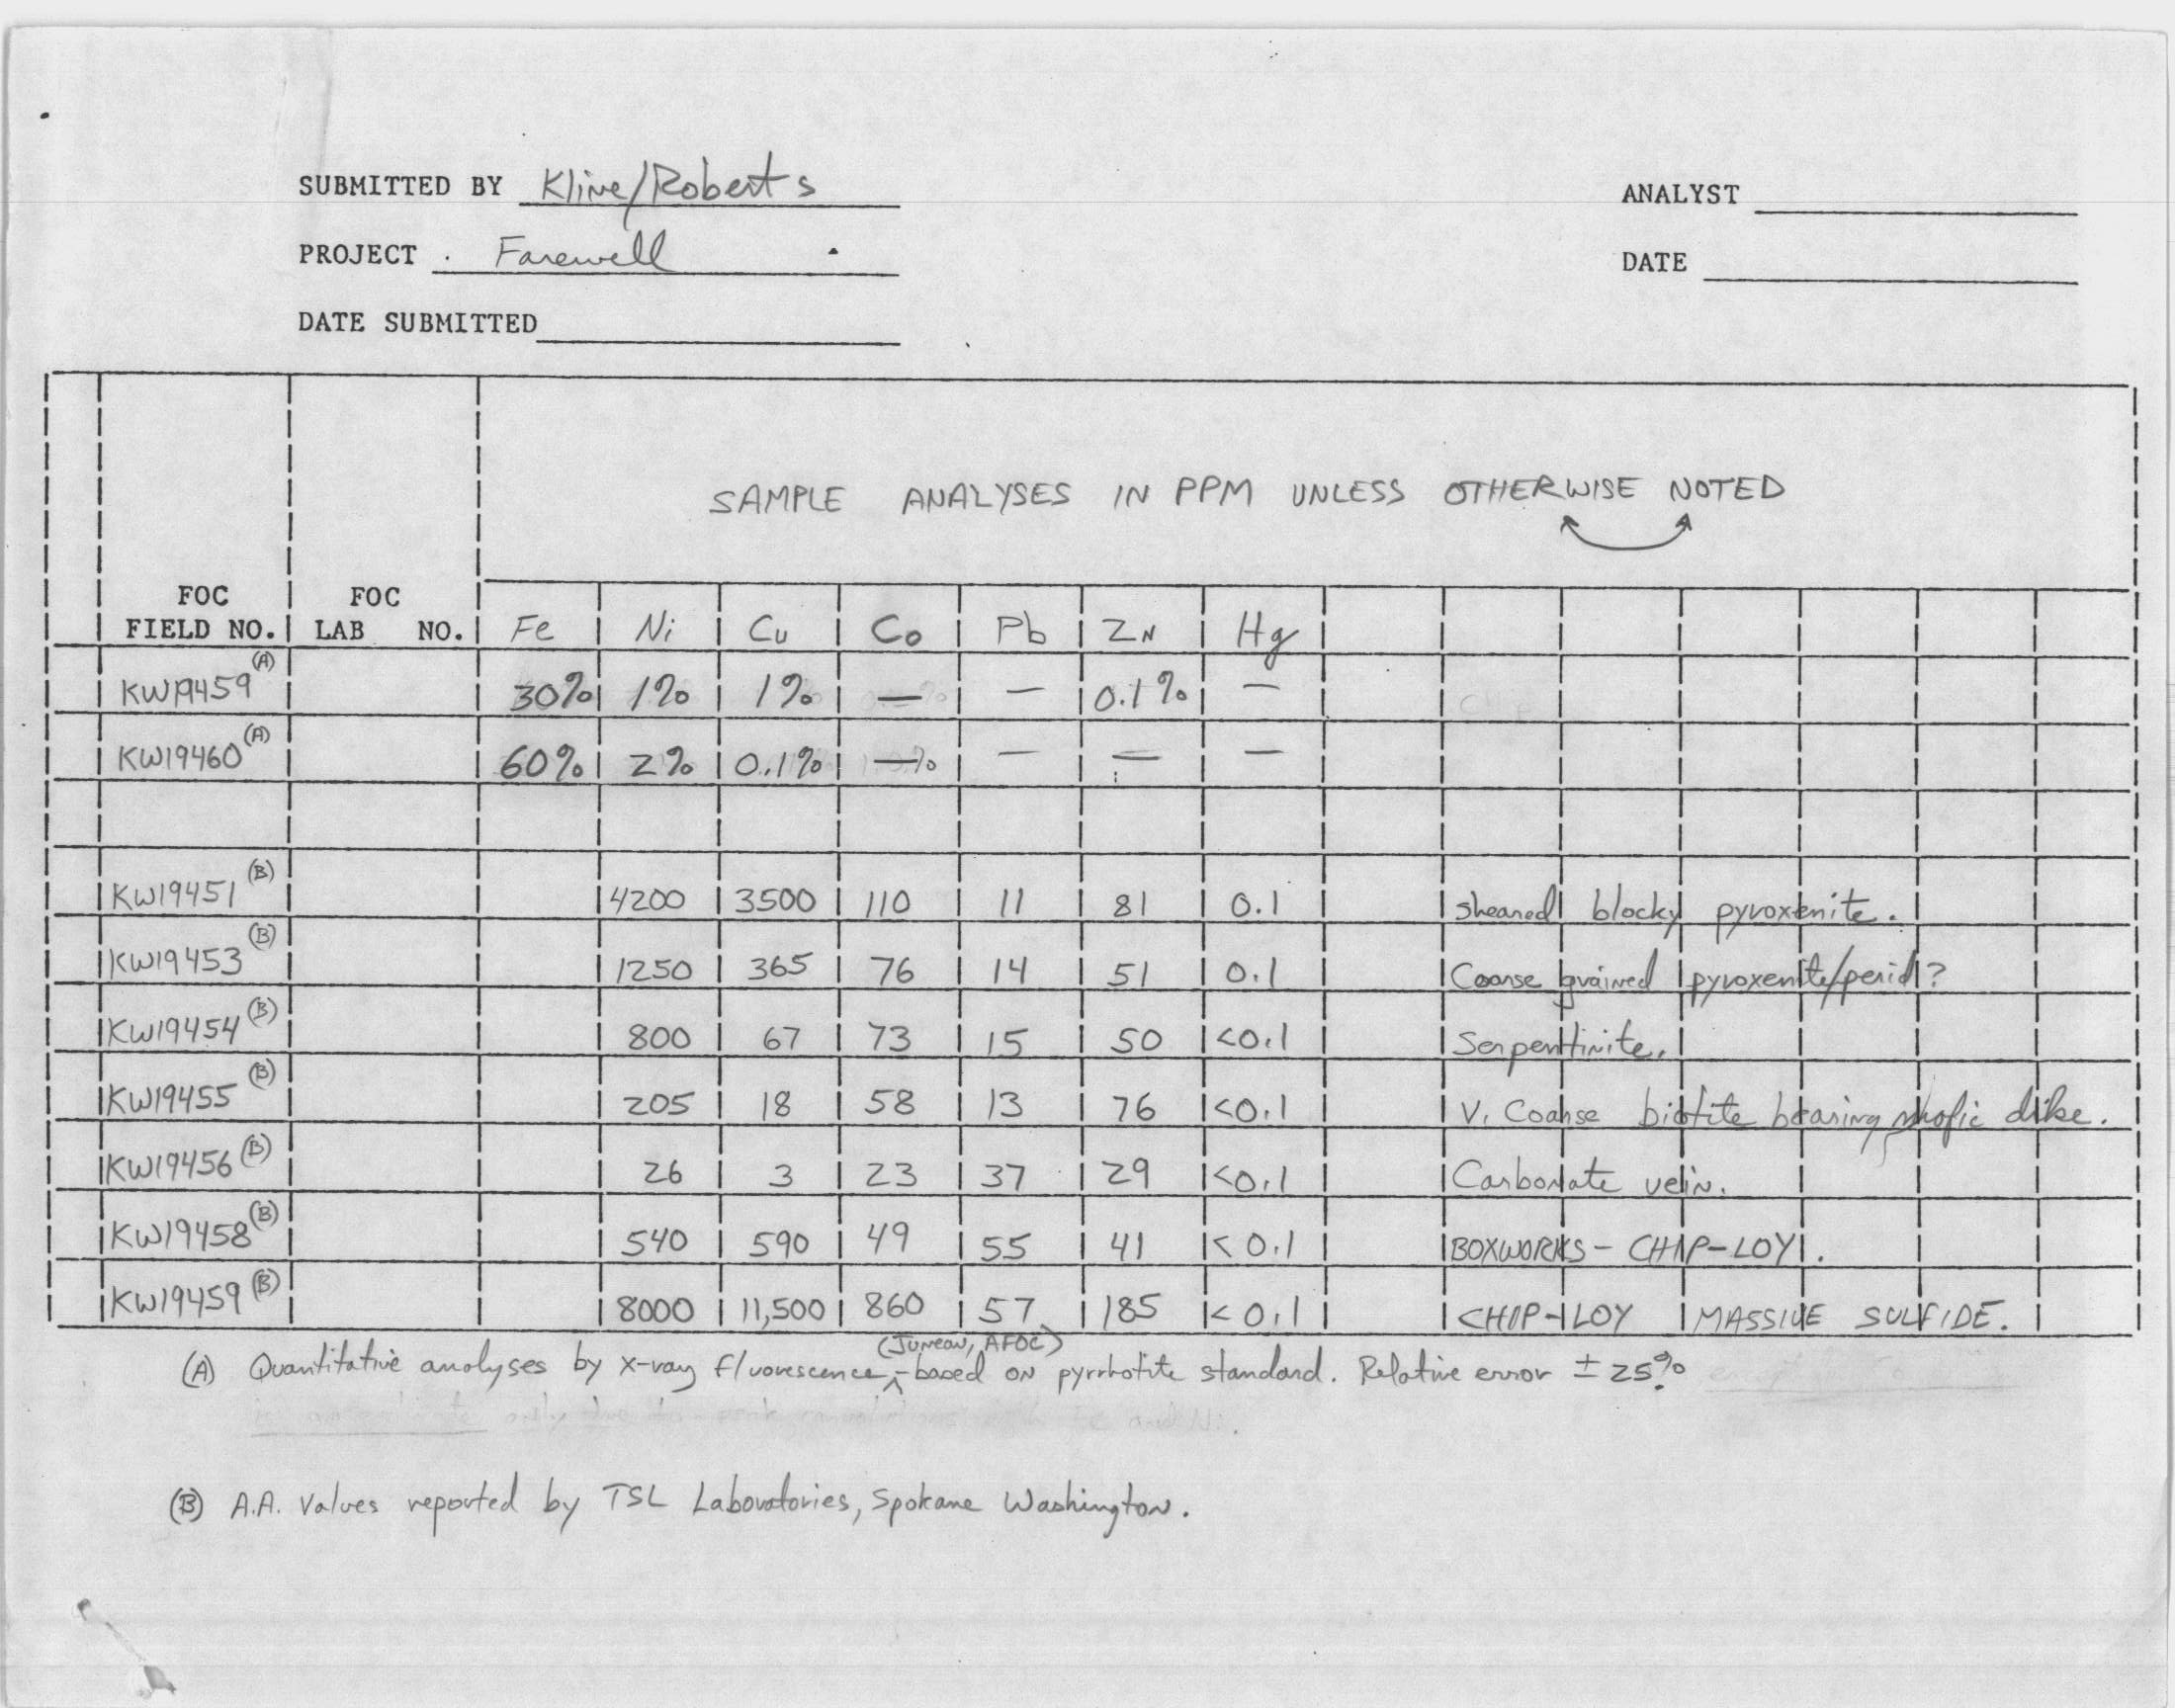 SUBMITTED BY Kline/Roberts
ANALYST
PROJECT Farewell
DATE
DATE SUBMITTED
SAMPLE ANALYSES IN PPM UNLESS OTHERWISE NOTED
FOC FIELD NO. FOC LAB NO. Fe Ni Cu Co Pb ZN Hg
KW19459 (A) 30% 1% 1% — — 0.1% —
KW19460 (A) 60% 2% 0.1% — — — —
KW19451 (B) 4200 3500 110 11 81 0.1 Sheared blocky pyroxenite.
KW19453 (B) 1250 365 76 14 51 0.1 Coarse grained pyroxenite/perid?
KW19454 (B) 800 67 73 15 50 <0.1 Serpentinite.
KW19455 (B) 205 18 58 13 76 <0.1 V. Coarse biotite bearing mafic dike.
KW19456 (B) 26 3 23 37 29 <0.1 Carbonate vein.
KW19458 (B) 540 590 49 55 41 <0.1 BOXWORKS - CHIP-LOY.
KW19459 (B) 8000 11,500 860 57 185 <0.1 CHIP-LOY MASSIVE SULFIDE.
(Juneau, AFOC)
(A) Quantitative analyses by x-ray fluorescence - based on pyrrhotite standard. Relative error ± 25%
(B) A.A. Values reported by TSL Laboratories, Spokane Washington.